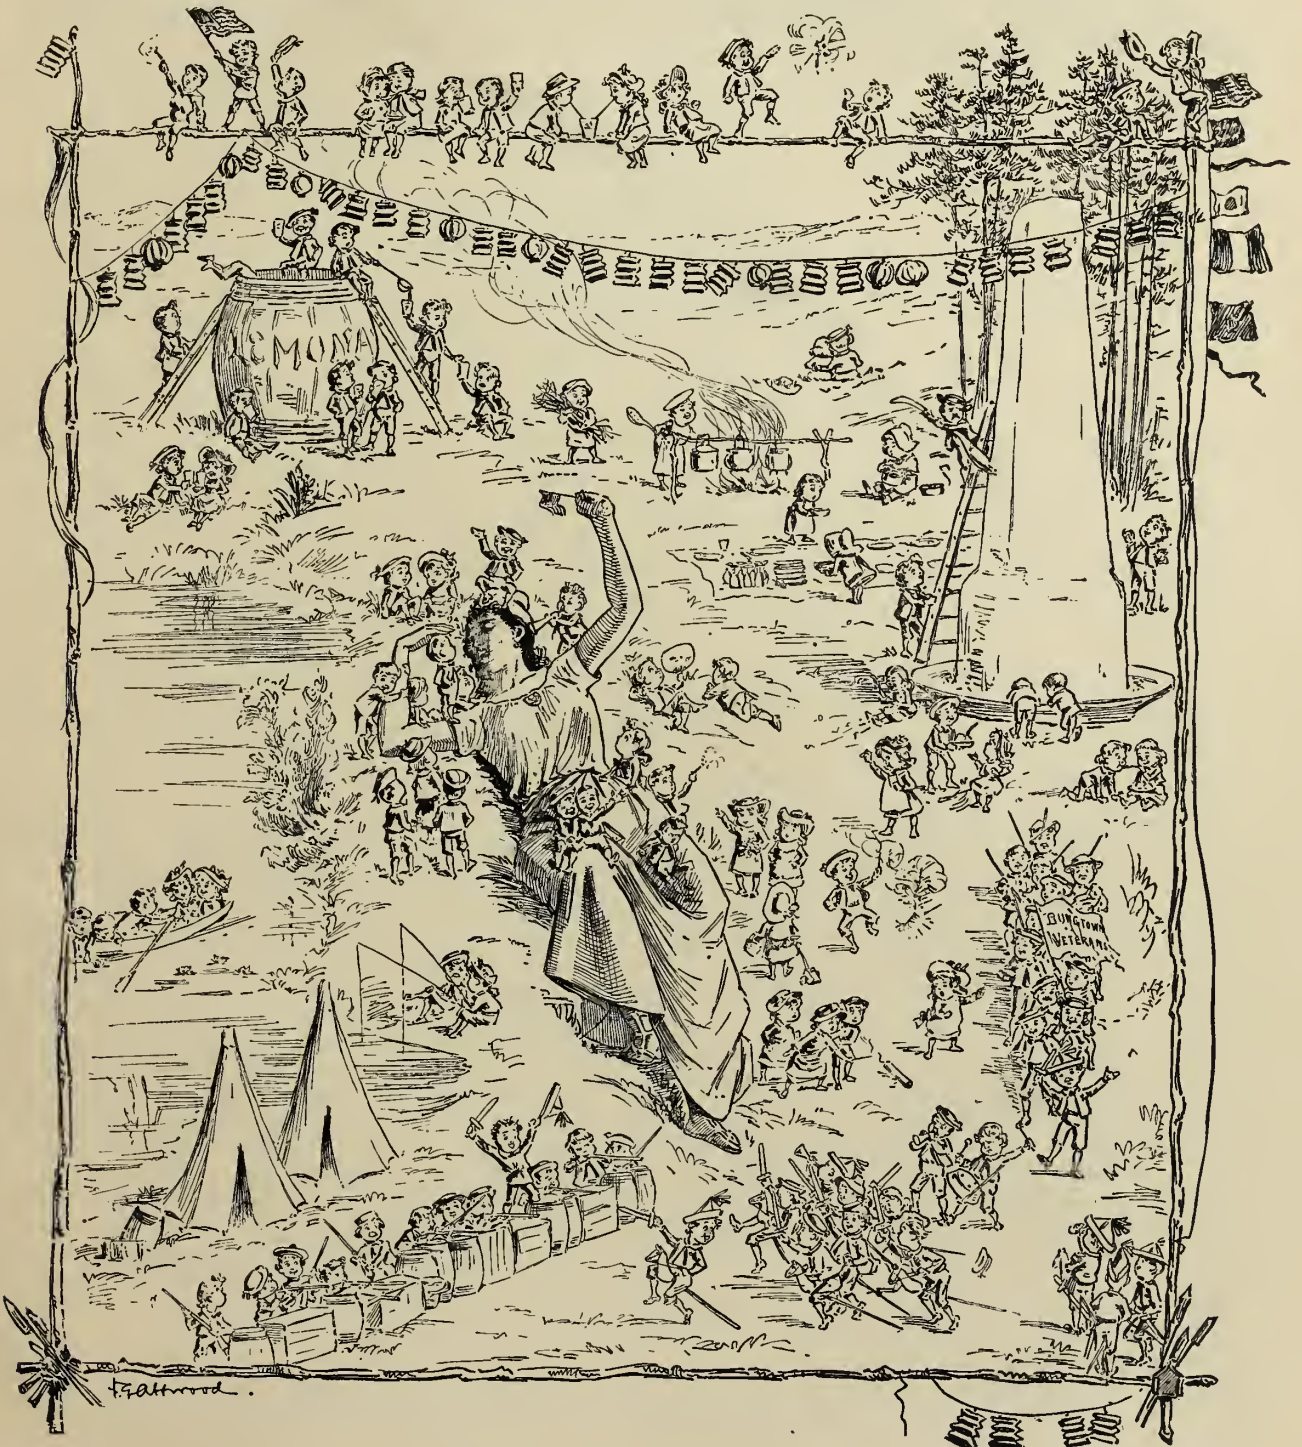 EMONA
BUNGTOWN
VETERANS
F.G. Attwood.